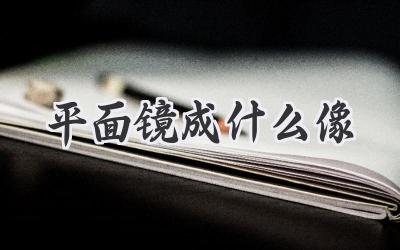 平面镜成什么像